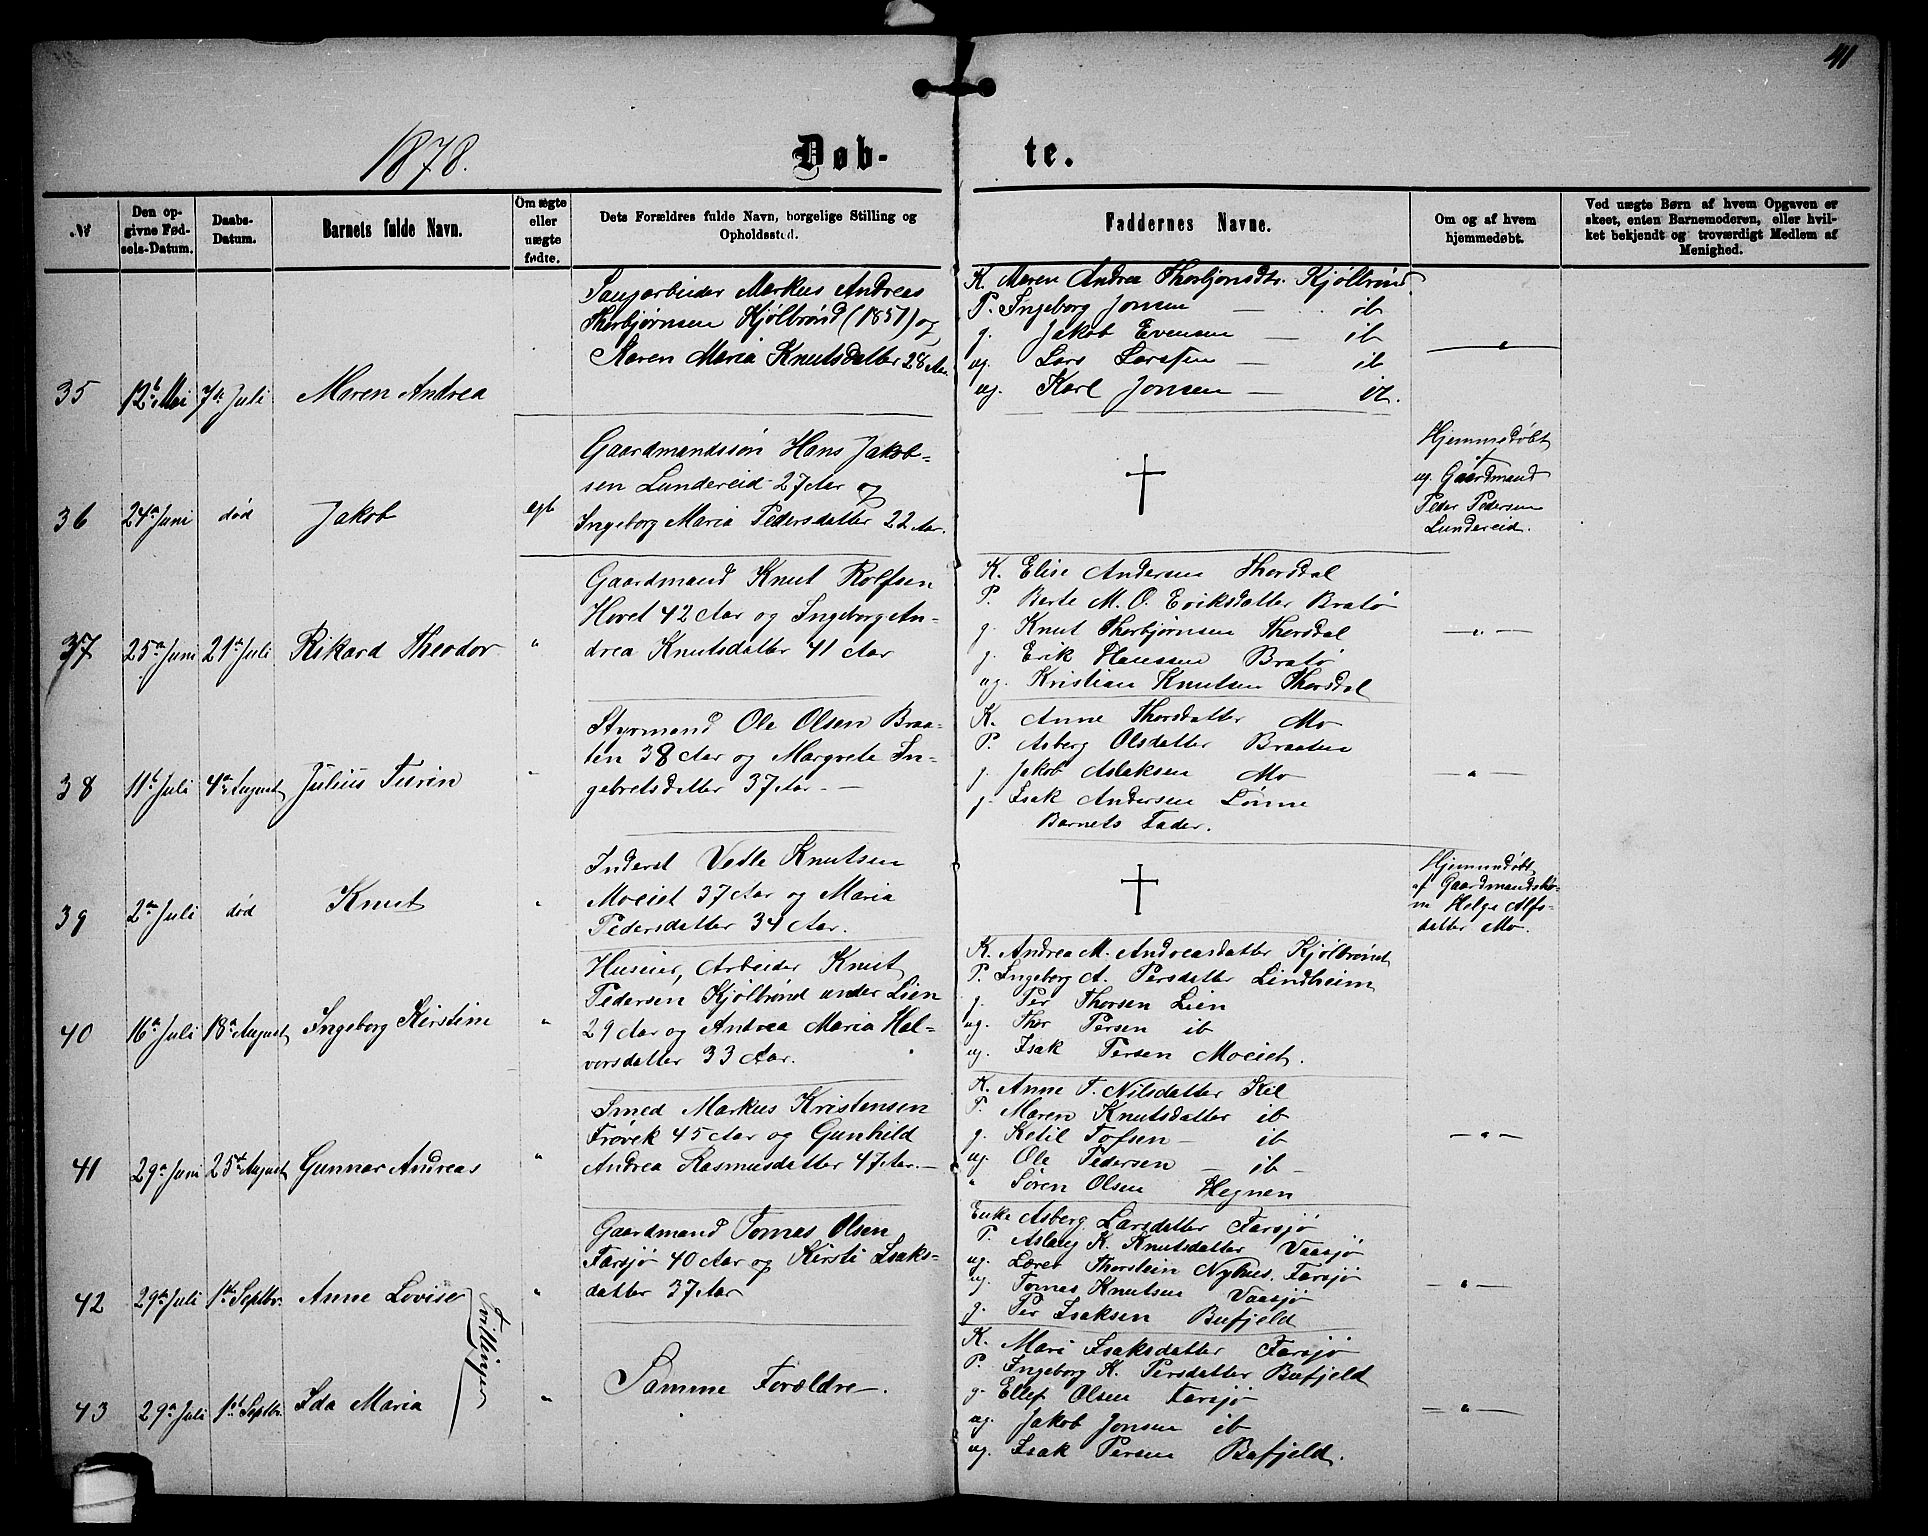 41
1878.
Døb-
te.
№
Den op-
givne Fød-
sels-Datum.
Daabs-
Datum.
Barnets fulde Navn.
Om ægte
eller
uægte
fødte.
Dets Forældres fulde Navn, borgelige Stilling og
Opholdssted.
Faddernes Navne.
Om og af hvem
hjemmedøbt.
Ved uægte Børn af hvem Opgaven er
skeet, enten Barnemoderen, eller hvil-
ket bekjendt og troværdigt Medlem af
Menighed.
35 12te Mai 7de Juli Maren Andrea
Saugarbeider Markus Andreas
Thorbjørnsen Kjølbrønd (1851) og
Karen Maria Knutsdatter 28 Aar.
K. Maren Andrea Thorbjønsdtr. Kjølbrønd.
P. Ingeborg Jonsen — ib
g. Jakob Evensen — ib
ug. Lars Larssen — ib
ug. Karl Jonsen — ib.
— " —
36 24de Juni død Jakob ægt
Gaardmandssøn Hans Jakob-
sen Lundereid 27 Aar og
Ingeborg Maria Pedersdatter 22 Aar.
†
Hjemmedøbt
af
ug. Gaardmand
Peder Pedersen
Lundereid.
37 25de Juni 21de Juli Rikard Theodor "
Gaardmand Knut Rolfsen
Hovet 42 Aar og Ingeborg An-
drea Knutsdatter 41 Aar
K. Elise Andersen Thorsdal
P. Berte M. O. Eriksdatter Bratø
g. Knut Thorbjørnsen Thorsdal
g. Erik Hanssen Bratø
ug. Kristian Knutsen Thorsdal
— " —
38 11te Juli 4de August Julius Turin "
Styrmand Ole Olsen Braa-
ten 38 Aar og Margrete In-
gebretsdatter 37 Aar. —
K. Anne Thorsdatter Mo
P. Asberg Olsdatter Braaten
g. Jakob Aslaksen Mo
g. Isak Andersen Lønne
Barnets Fader.
— " —
39 2den Juli død Knut "
Inderst Vetle Knutsen
Moeiet 37 Aar og Maria
Pedersdatter 34 Aar.
†
Hjemmedøbt
af Gaardmandsko-
ne Helge Alfs-
datter Mo.
40 16de Juli 18de August Ingeborg Kirstine "
Huseier, Arbeider Knut
Pedersen Kjølbrønd under Lien
29 Aar og Andrea Maria Hal-
vorsdatter 33 Aar.
K. Andrea M. Andreasdatter Kjølbrønd
P. Ingeborg A. Persdatter Lindheim
g. Per Thorsen Lien
ug. Thor Persen ib
ug. Isak Persen Moeiet.
41 29de Juni 25de August Gunnar Andreas "
Smed Markus Kristensen
Frøvek 45 Aar og Gunhild
Andrea Rasmusdatter 47 Aar. —
K. Anne T. Nilsdatter Kil
P. Maren Knutsdatter ib
g. Ketil Tofsen — ib
ug. Ole Pedersen — ib —
" Søren Olsen Hegnen
— " —
42 29de Juli 1ste Septbr. Anne Lovise "
Tvillinger
Gaardmand Tomas Olsen
Farsjø 40 Aar og Kirsti Isaks-
datter 37 Aar
Enke Asberg Larsdatter Farsjø
P. Aslaug K. Knutsdatter Vaasjø
ug. Lærer Thorstein Nyhus. Farsjø
ug. Tomas Knutsen Vaasjø
g. Per Isaksen Bufjeld
— " —
43 29de Juli 1ste Septbr. Ida Maria "
Samme Forældre.
K. Mari Isaksdatter Farsjø
P. Ingeborg K. Persdatter Bufjeld
g. Ellef Olsen Farsjø
ug. Jakob Jonsen ib
ug. Isak Persen Bufjeld.
— " —